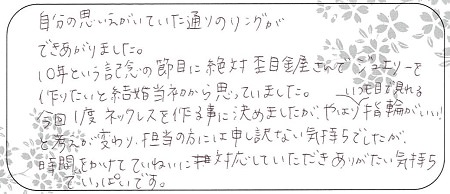 自分の思いえがいていた通りのリングが
できあがりました。
10年という記念の節目に絶対杢目金屋さんでジュエリーを
作りたいと結婚当初から思っていました。
今回1度ネックレスを作る事に決めましたが、やはりいつも目で見れる指輪がいい!
と考えが変わり、担当の方には申し訳ない気持ちでしたが、
時間をかけてていねいに対応していただきありがたい気持ち
でいっぱいです。